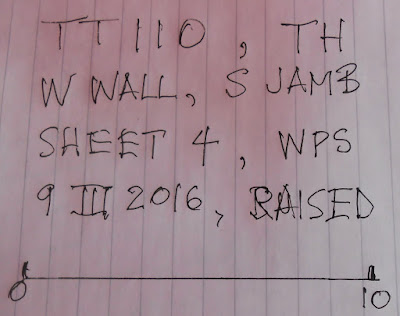 TT 110, TH
W WALL, S JAMB
SHEET 4, WPS
9 III 2016, RAISED
0 10